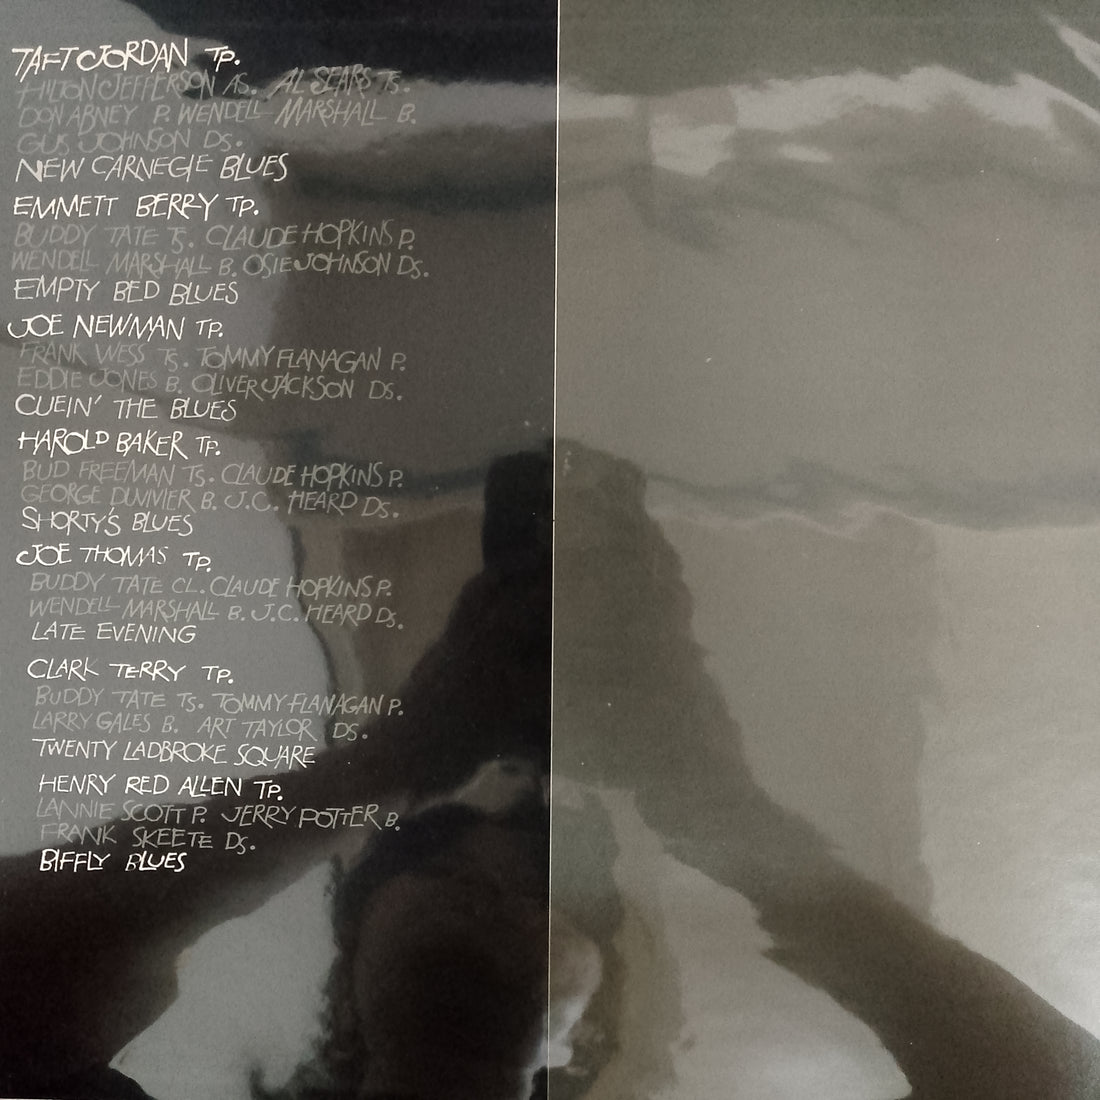 TAFT JORDAN TP.
HILTON JEFFERSON AS. AL SEARS TS.
DON ABNEY P. WENDELL MARSHALL B.
GUS JOHNSON DS.
NEW CARNEGIE BLUES
EMMETT BERRY TP.
BUDDY TATE TS. CLAUDE HOPKINS P.
WENDELL MARSHALL B. OSIE JOHNSON DS.
EMPTY BED BLUES
JOE NEWMAN TP.
FRANK WESS TS. TOMMY FLANAGAN P.
EDDIE JONES B. OLIVER JACKSON DS.
CUEIN' THE BLUES
HAROLD BAKER TP.
BUD FREEMAN TS. CLAUDE HOPKINS P.
GEORGE DUVIVIER B. J.C. HEARD DS.
SHORTY'S BLUES
JOE THOMAS TP.
BUDDY TATE CL. CLAUDE HOPKINS P.
WENDELL MARSHALL B. J.C. HEARD DS.
LATE EVENING
CLARK TERRY TP.
BUDDY TATE TS. TOMMY FLANAGAN P.
LARRY GALES B. ART TAYLOR DS.
TWENTY LADBROKE SQUARE
HENRY RED ALLEN TP.
LANNIE SCOTT P. JERRY POTTER B.
FRANK SKEETE DS.
BIFFLY BLUES